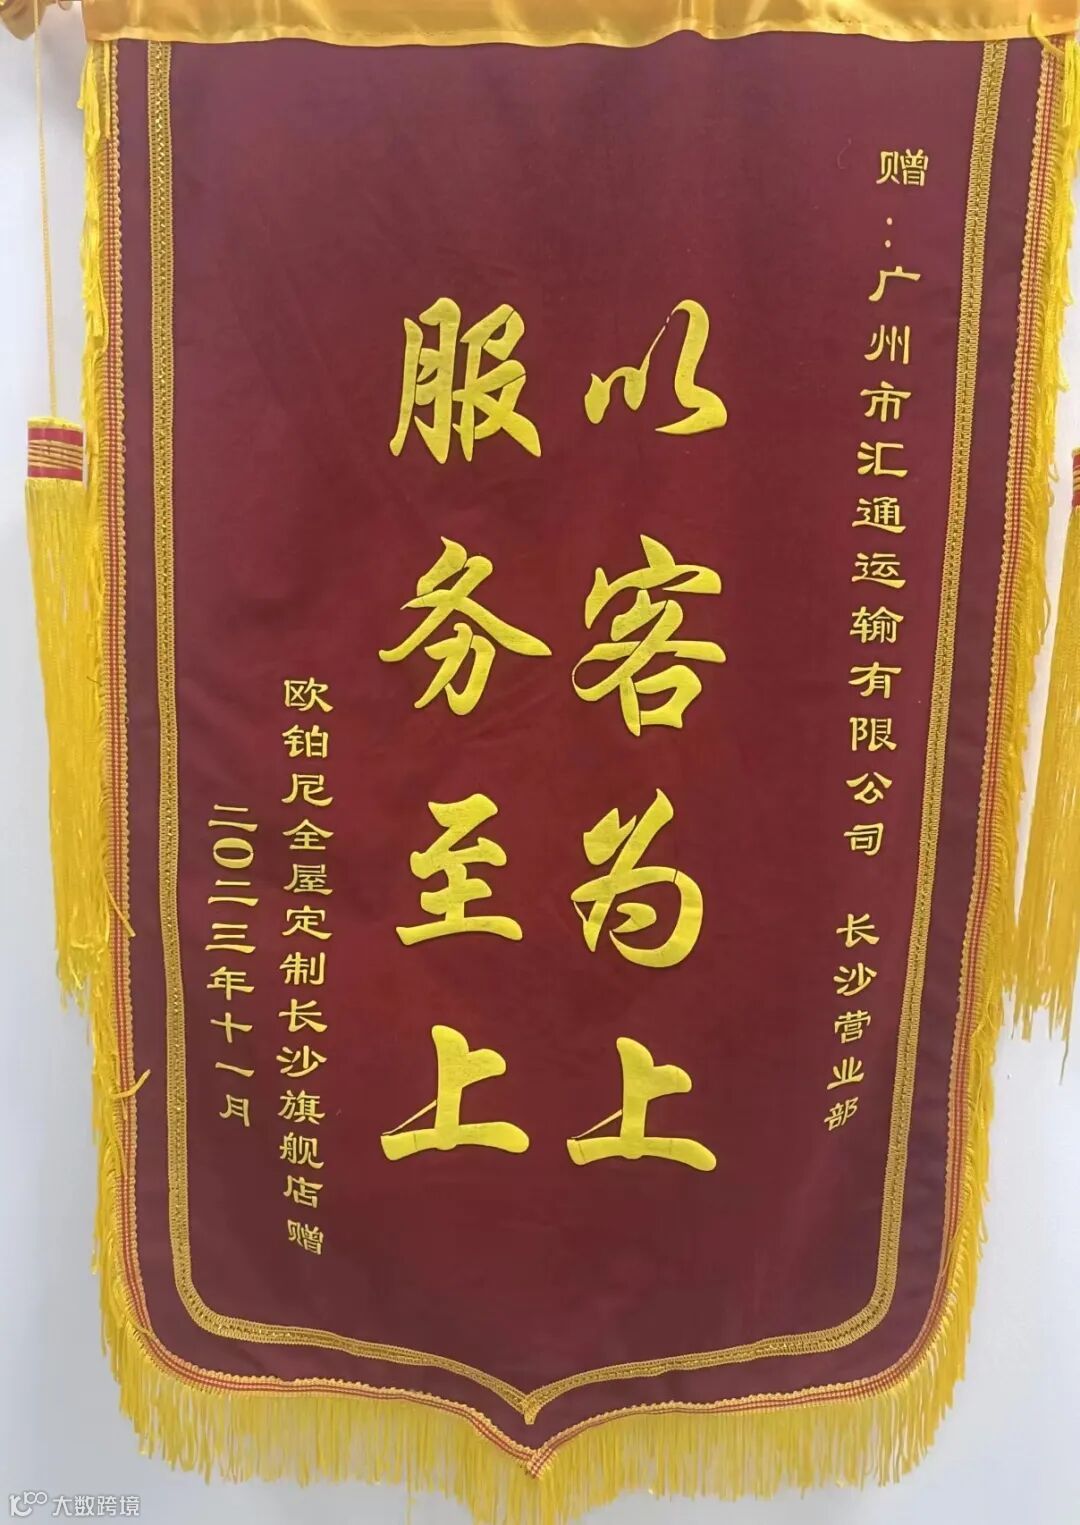 赠：广州市汇通运输有限公司 长沙营业部
以客为上
服务至上
欧铂尼全屋定制长沙旗舰店赠
二〇二三年十一月
大数跨境